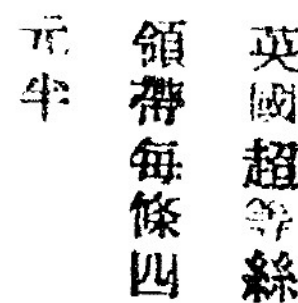 英國超等絲
領帶每條四
元半